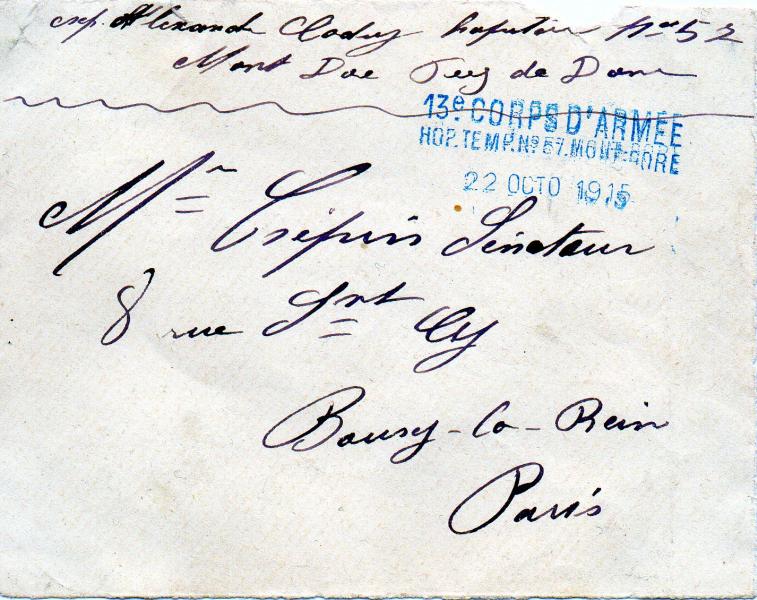 exp. Alexandre Caduj hopitau N° 52
Mont Dor Puy de Dom
13e CORPS D'ARMÉE
HOP. TEMP. No 57. MONT-DORE
22 OCTO 1915
Mr Crépin Sénateur
8 rue Snt Cy
Boursy-la-Rein
Paris